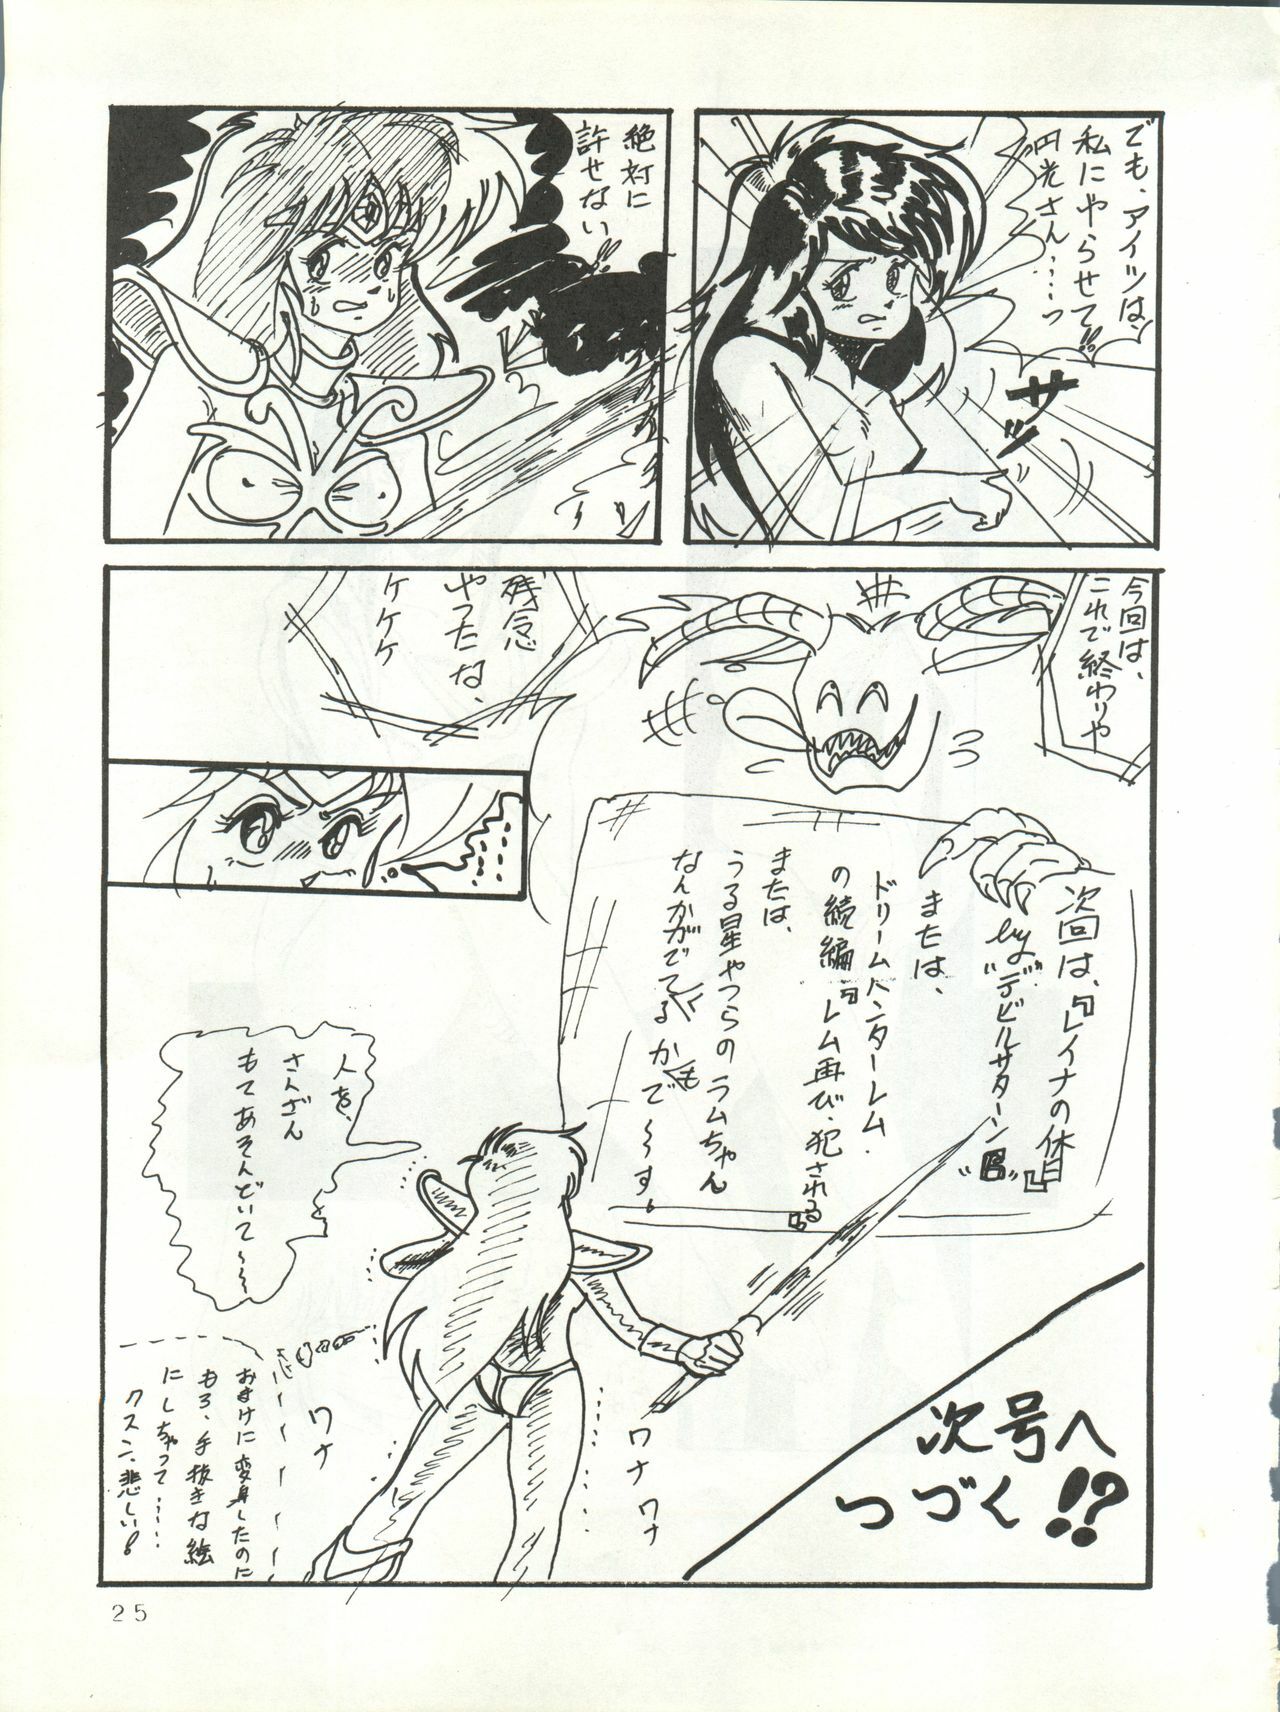 でも、アイツは、
私にやらせて!!
円光さん……っ
サッ
絶対に
許せない
今回は、
これで終わりや
残念
やったな、
ケケケ
次回は、『レイナの休日』
by "デビルサターン"
または、
ドリームハンターレム
の続編『レム再び、犯される』
または、
うる星やつらのラムちゃん
なんかがでてるかも
で〜〜す。
人を、
さんざん
もてあそんどいて〜〜〜
ワナ
ワナ
ワナ
おまけに変身したのに
もろ、手抜きな絵
にしちゃって……
クスン、悲しい。
次号へ
つづく!?
25